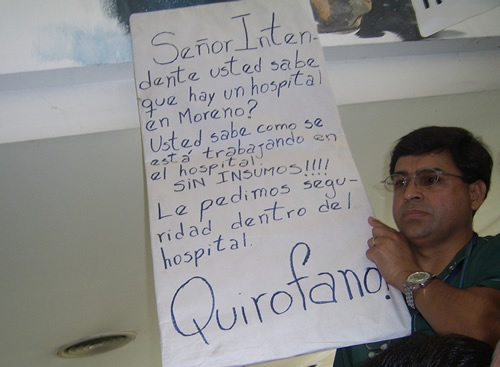 Señor Inten-
dente usted sabe
que hay un hospital
en Moreno?
Usted sabe como se
está trabajando en
el hospital.
SIN INSUMOS!!!!
Le pedimos segu-
ridad dentro del
hospital.
Quirofano!